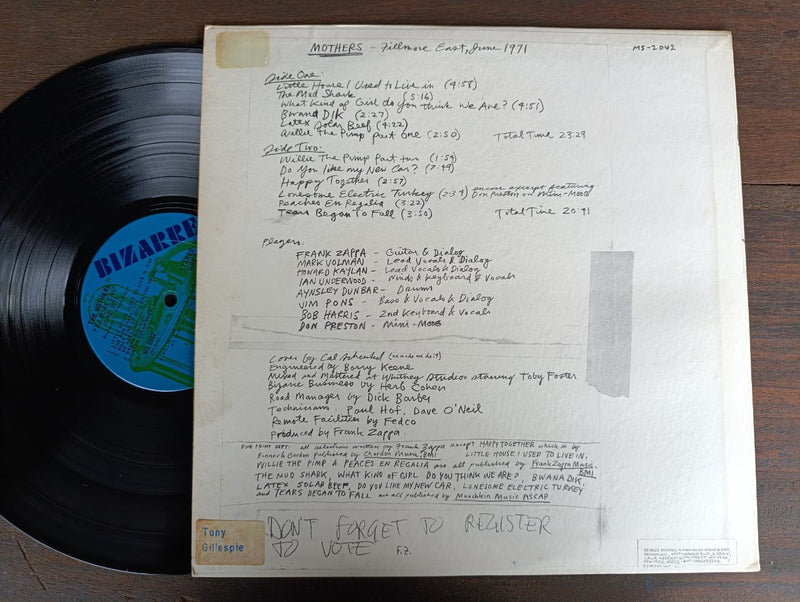 MOTHERS - Fillmore East, June 1971
MS-2042
Side One:
Little House I Used to Live in (4:58)
The Mud Shark (5:16)
What Kind of Girl do you think We Are? (4:51)
Bwana DIK (2:27)
Latex Solar Beef (4:22)
Willie The Pimp part one (2:50) Total Time 23:29
Side Two:
Willie The Pimp Part two (1:54)
Do You like my New Car? (7:49)
Happy Together (2:57)
Lonesome Electric Turkey (2:34) encore excerpt featuring Don Preston on Mini-MOOG
Peaches En Regalia (3:22)
Tears Began To Fall (3:50) Total Time 20:41
Players:
FRANK ZAPPA - Guitar & Dialog
MARK VOLMAN - Lead Vocals & Dialog
HOWARD KAYLAN - Lead Vocals & Dialog
IAN UNDERWOOD - Winds & Keyboard & Vocals
AYNSLEY DUNBAR - Drums
JIM PONS - Bass & Vocals & Dialog
BOB HARRIS - 2nd Keyboard & Vocals
DON PRESTON - Mini-MOOG
Cover by Cal Schenkel
Engineered by Barry Keene
Mixed and Mastered at Whitney Studios starring Toby Foster
Bizarre Business by Herb Cohen
Road Manager by Dick Barber
Technicians Paul Hof, Dave O'Neil
Remote Facilities by Fedco
Produced by Frank Zappa
FINE PRINT DEPT: all selections written by Frank Zappa except HAPPY TOGETHER which is by
Bonner & Gordon published by Chardon Music, BMI LITTLE HOUSE I USED TO LIVE IN,
WILLIE THE PIMP & PEACES EN REGALIA are all published by Frank Zappa Music, BMI
THE MUD SHARK, WHAT KIND OF GIRL DO YOU THINK WE ARE?, BWANA DIK,
LATEX SOLAR BEEF, DO YOU LIKE MY NEW CAR, LONESOME ELECTRIC TURKEY
and TEARS BEGAN TO FALL are all published by Munchkin Music ASCAP
DON'T FORGET TO REGISTER
TO VOTE F.Z.
Tony
Gillespie
BIZARRE